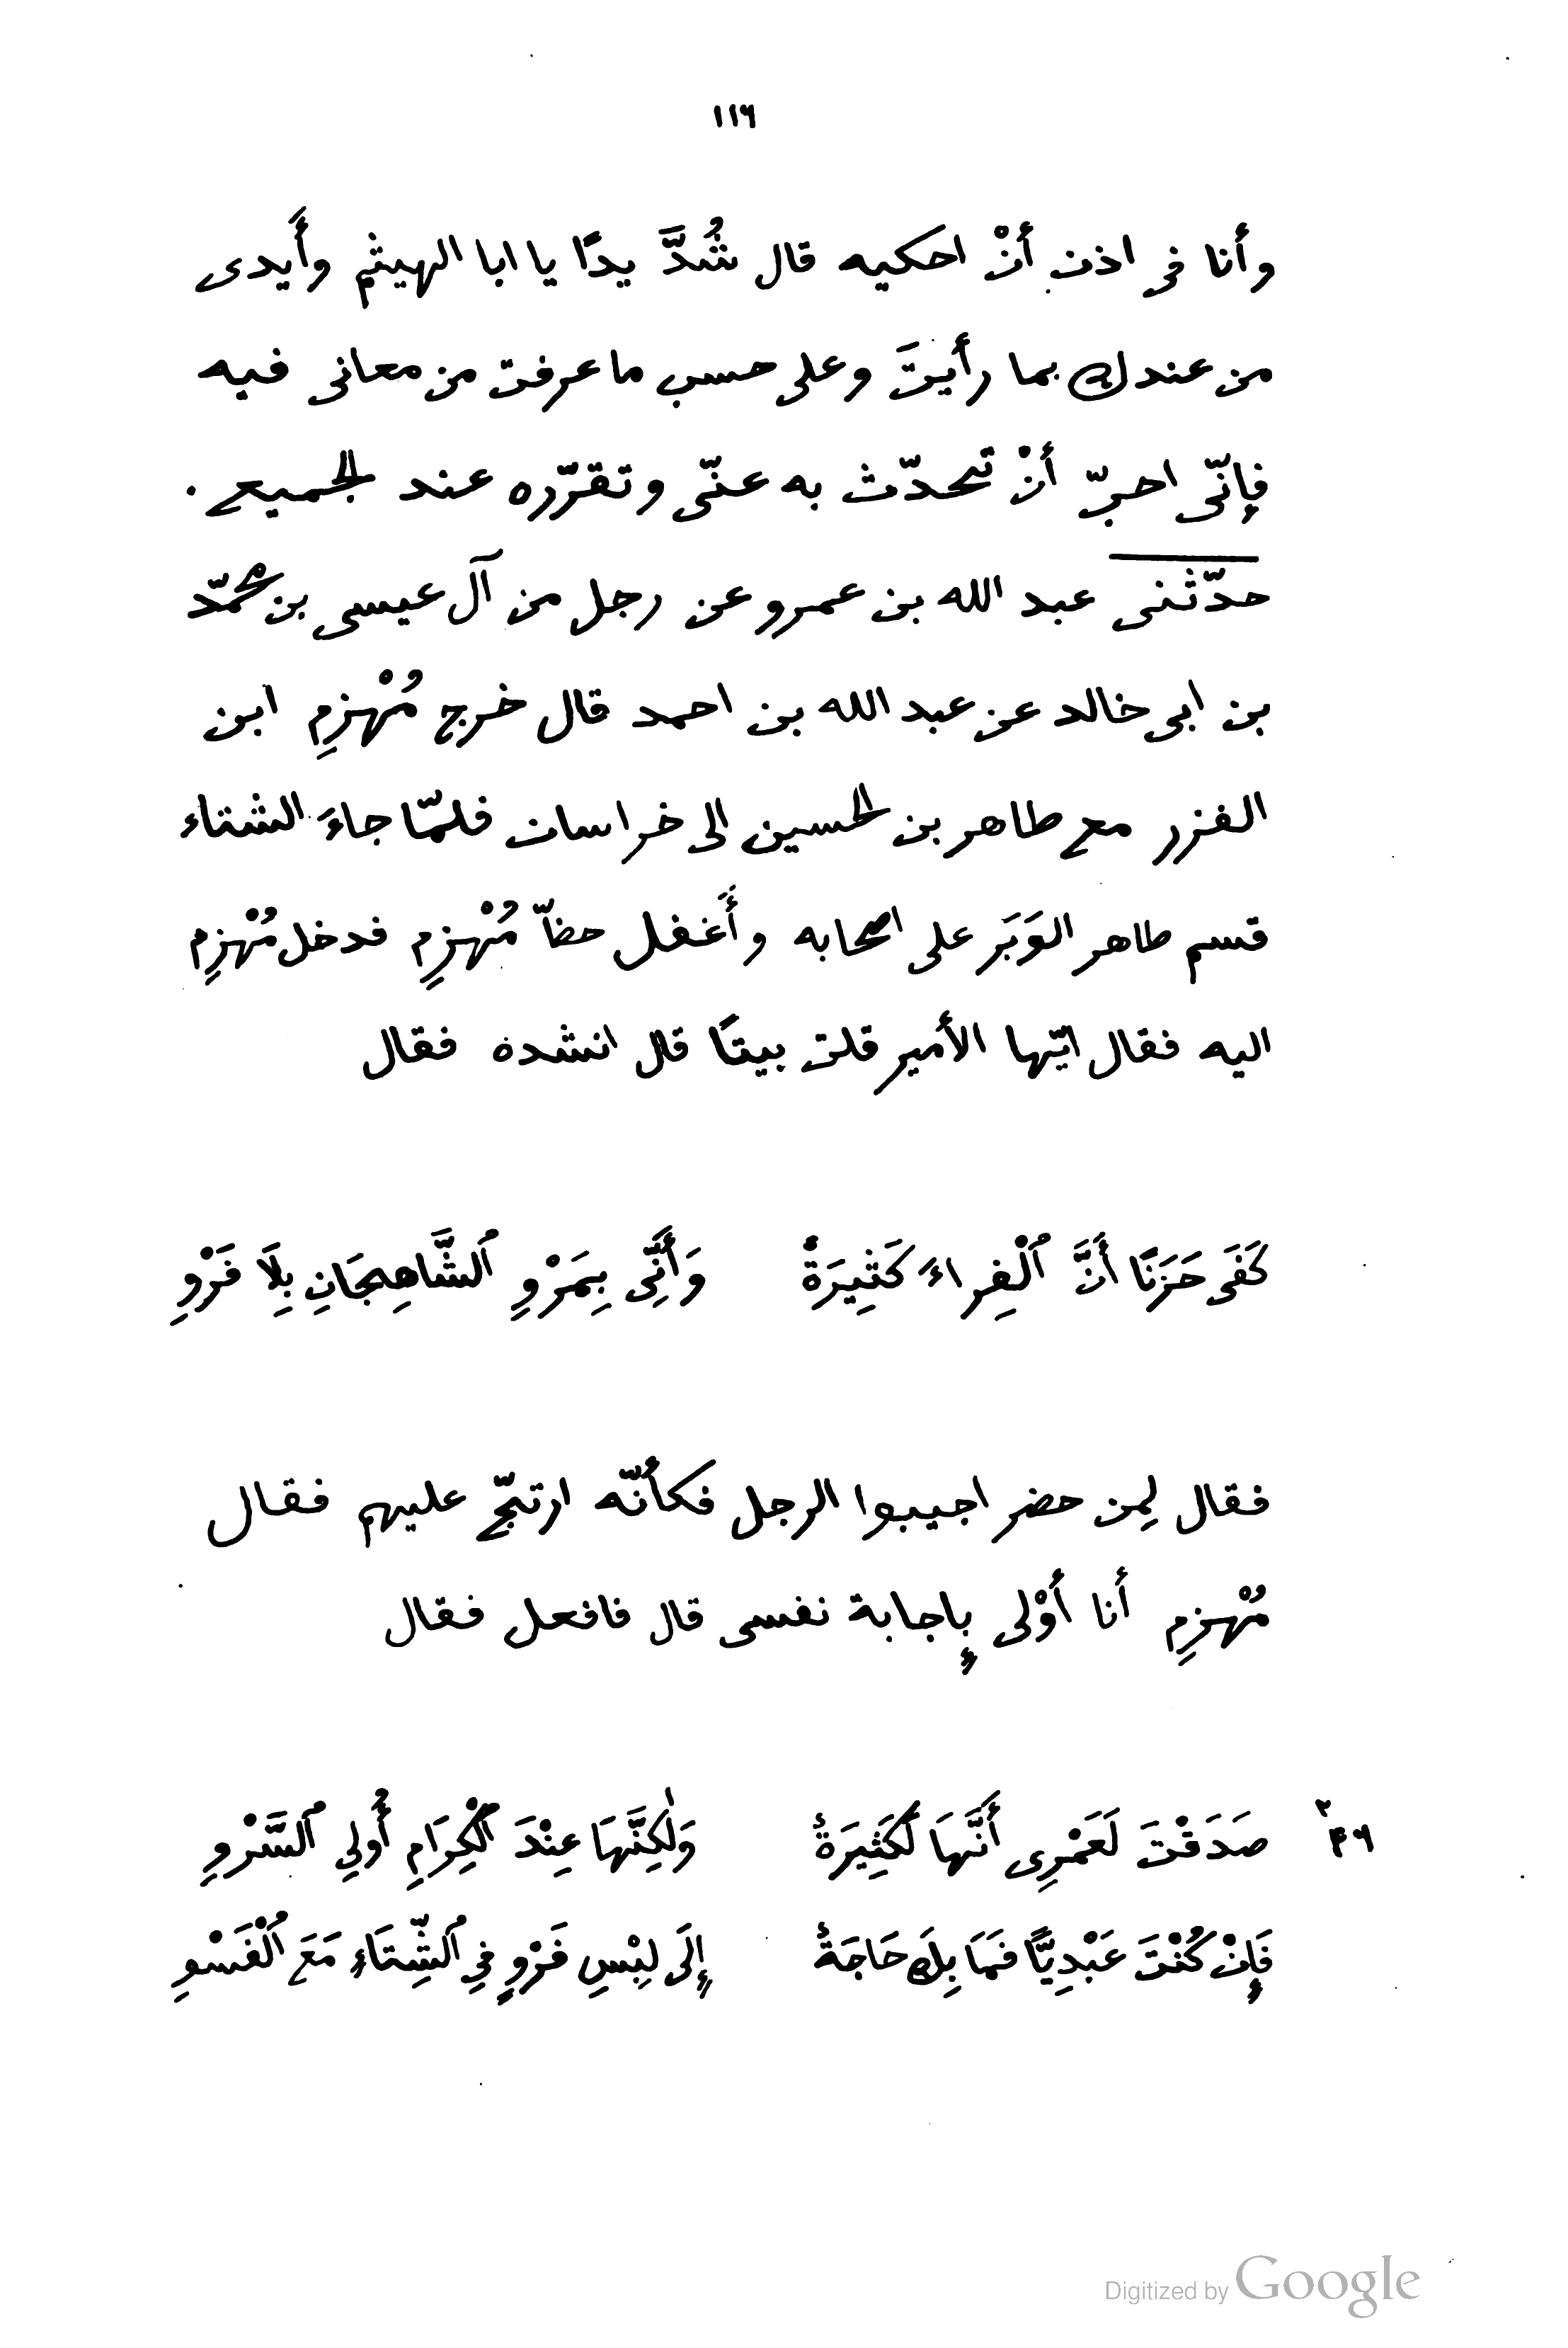 ١١٦
وأنا فى اذن أنْ احكيه قال شُدَّ يدًا يا ابا الهيثم وأَيدى
من عندك بما رأيتَ وعلى حسب ما عرفت من معانى فيه
فإنّى احبّ أنْ تحدّث به عنّى وتقرّره عند الجميع .
حدّثنى عبد الله بن عمرو عن رجل من آل عيسى بن محمّد
بن ابى خالد عن عبد الله بن احمد قال خرج مُهْزِم ابن
الفزر مع طاهر بن الحسين الى خراسان فلمّا جاءَ الشتاء
قسم طاهر الوَبَر على اصحابه وأَغفل حضّا مُهْزِمٍ فدخل مُهْزِم
اليه فقال ايّها الأمير قلت بيتًا قال انشده فقال
كَفَى حَزَنًا أَنَّ ٱلْفِراءَ كَثِيرَةٌ وَأَنِّى بِمَرْوِ ٱلشَّاهِجَانِ بِلَا فَرْوِ
فقال لِمن حضر اجيبوا الرجل فكأنّه ارتجّ عليهم فقال
مُهْزِم أنا أَوْلى بِإجابة نفسى قال فافعل فقال
٤٦٢ صَدَقْتَ لَعَمْرِى أَنَّهَا لَكَثِيرَةٌ وَلٰكِنَّهَا عِنْدَ ٱلْكِرَامِ أُولِي ٱلسَّرْوِ
فَإِنْ كُنْتَ عَبْدِيًّا فَمَا بِكَ حَاجَةٌ إِلَى لِبْسِ فَرْوٍ فِي ٱلشِّتَاءِ مَعَ ٱلْفَسْوِ
Digitized by Google